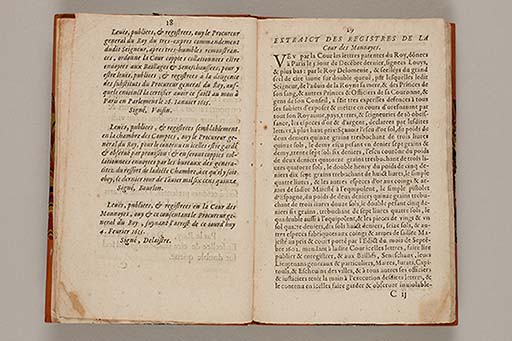 18
Leuës, publiees, & registrees, ouy le Procureur
general du Roy du tres-expres commandement
dudit Seigneur, apres tres-humbles remonstran-
ces, ordonne la Cour coppies collationnees estre
enuoyees aux Bailliages & Seneschaussees pour y
estre leuës, publiees, & registrees à la diligence
des substituts du Procureur general du Roy, aus-
quels enioinct la certifier auoir ce faict au mois à
Paris en Parlement le 28. Ianuier 1615.
Signé, Voisin.
Leuës, publiees, & registrees semblablement
en la chambre des Comptes, ouy le Procureur ge-
neral du Roy, pour le contenu en icelles estre gardé
& obserué
Signé, Bourlon.
Leuës, publiees, & registrees en la Cour des
Monnoyes, ouy & ce consentant le Procureur ge-
neral du Roy, suyuant l'arrest de ce iourd'huy
4. Feurier 1615.
Signé, Delaistre.
19
EXTRAICT DES REGISTRES DE LA
Cour des Monnoyes.
VEv par la Cour les lettres patentes du Roy, dōnees
à Paris le 5. iour de Decēbre dernier, signees Louys,
& plus bas: par le Roy Delomenie, & seellees du grand
seel de cire iaune sur double queuë, par lesquelles ledit
Seigneur, de l'aduis de la Royne sa mere, & des Princes de
son sang, & autres Princes & Officiers de sa Couronne, &
gens de son Conseil, a faict tres expresses defences à tous
ses subiects d'exposer & mettre en commerce par tout
son Royaume, pays, terres, & seigneuries de sō obeis-
sance, les especes d'or & d'argent, declarees par lesdites
lettres, à plus haut prix: Sçauoir l'escu d'or sol, du poids de
deux deniers quinze grains trebuchant de trois liures
quinze sols, le demy escu pesant vn denier sept grains &
demy, trente sept sols six deniers, l'escu couronne du poids
de deux deniers quatorze grains trebuchant de trois liures
quatorze sols, le double henry du poids de cinq de-
niers dix sept grains trebuchant huict liures, le simple
quatre liures, & les autres especes d'or aux coings & ar-
mes de sadite Maiesté à l'equipolent, le simple pistolet
d'Espagne, du poids de deux deniers quinze grains trebu-
chant de trois liures douze sols, & le double pesant cinq de-
niers six grains, trebuchant de sept liures quatre sols, le
quadruple aussi à l'equipolent, & les pieces de vingt & vn
sol quatre deniers, dix sols huict deniers, seize sols, & au-
tres especes fabriquees aux coings & armes de sadite Ma-
iesté au prix & court porté par l'Edict du mois de Septēb.
1602. mandant à ladite Cour icelles lettres, faire lire
publier & enregistrer, & aux Baillifs, Seneschaux, leurs
Lieutenans generaux & particuliers, Maires, Iurats, Capi-
touls, & Escheuins des villes, & à tous autres ses officiers
& iusticiers tenir la main à l'execution desdites lettres, &
le contenu en icelles faire garder & obseruer inuiolable-
C ij